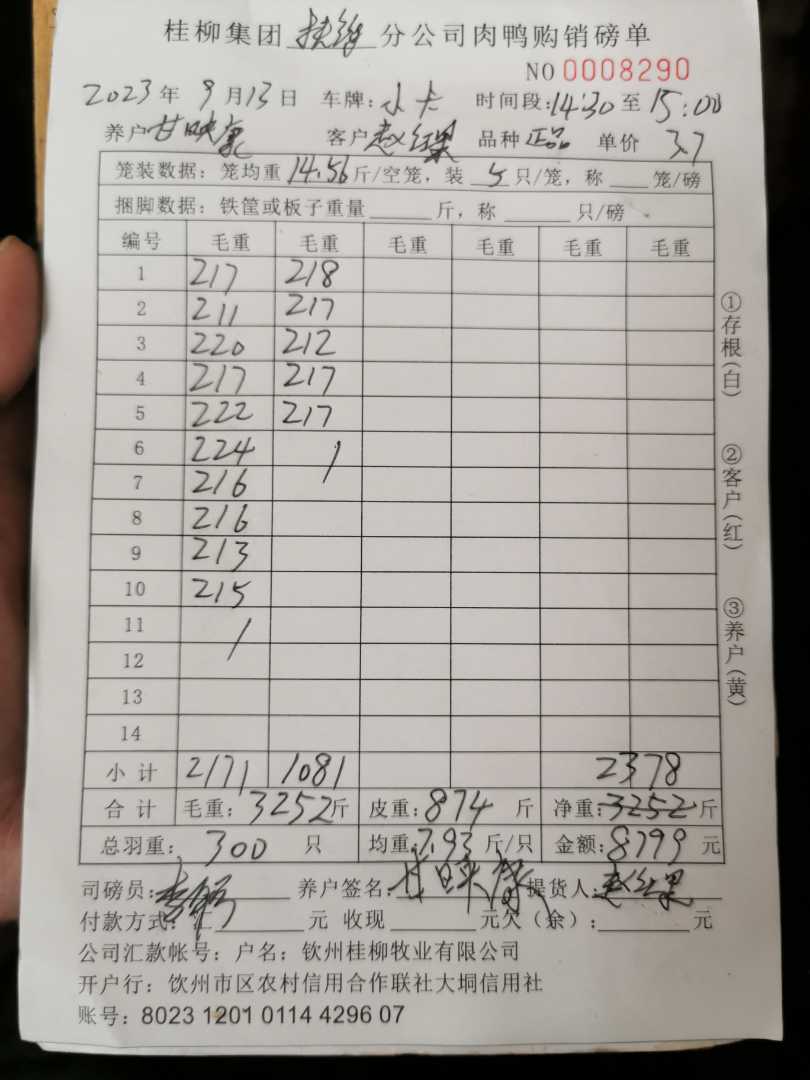 桂柳集团 扶绥 分公司肉鸭购销磅单
NO 0008290
2023年 9月13日 车牌: 小卡 时间段: 14:30 至 15:00
养户 甘映 客户 赵红果 品种 正品 单价 3.7
笼装数据: 笼均重 14.56 斤/空笼, 装 5 只/笼, 称 笼/磅
捆脚数据: 铁筐或板子重量 斤, 称 只/磅
编号 毛重 毛重 毛重 毛重 毛重 毛重
1 217 218
2 211 217
3 220 212
4 217 217
5 222 217
6 224 /
7 216
8 216
9 213
10 215
11 /
12
13
14
小计 2171 1081 2378
合计 毛重: 3252斤 皮重: 874 斤 净重: 3252斤
总羽重: 300 只 均重: 7.93 斤/只 金额: 8799 元
司磅员: 养户签名: 甘映 提货人: 赵红果
付款方式: 汇 元 收现 元欠(余): 元
公司汇款帐号: 户名: 钦州桂柳牧业有限公司
开户行: 饮州市区农村信用合作联社大垌信用社
账号: 8023 1201 0114 4296 07
①存根(白)
②客户(红)
③养户(黄)